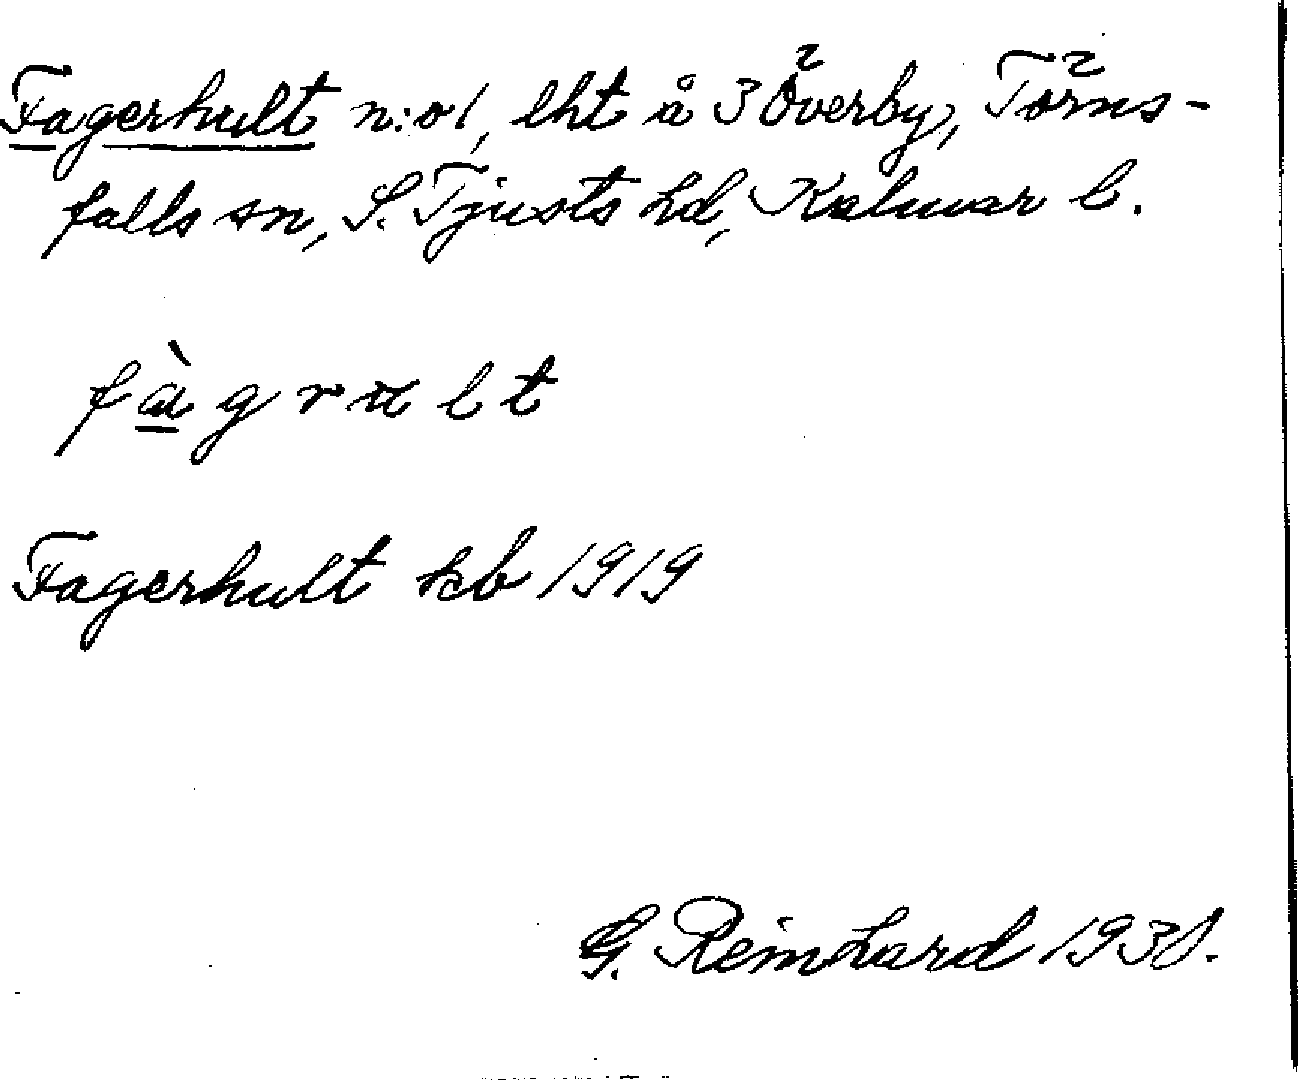 Fagerhult n:o 1, lht å 3 Överby, Törns-
falls sn, S. Tjusts hd, Kalmar l.
fàgrult
Fagerhult kb 1919
G. Reinhard